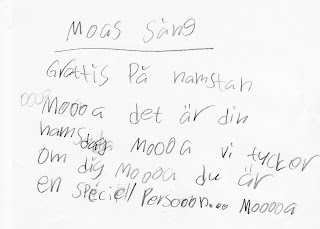 Moas sång
Grattis På namstan
Moooa det är din
namsdag MOOOa vi tycker
om dig Moooa du är
en speciell Persooon... MOOOOa